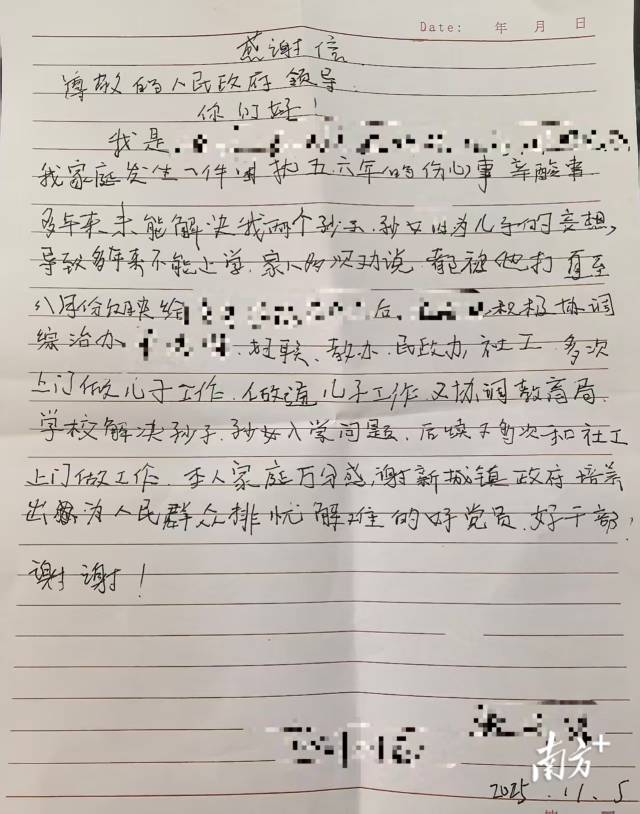 Date: 年 月 日
感谢信
尊敬的人民政府领导
你们好！
我是
我家庭发生一件 五.六年的伤心事 辛酸事
多年来未能解决我两个孙子.孙女因为儿子的妄想,
导致多年来不能上学.家人多次劝说 都被他打 直至
八月份反映给 后 积极协调
综治办 妇联、教办.民政办,社工 多次
上门做儿子工作.做通儿子工作 又协调教育局.
学校解决孙子.孙女入学问题.后续又多次和社工
上门做工作.本人家庭万分感谢新城镇政府培养
出 为人民群众排忧解难的好党员.好干部,
谢谢！
南方+
2025.11.5